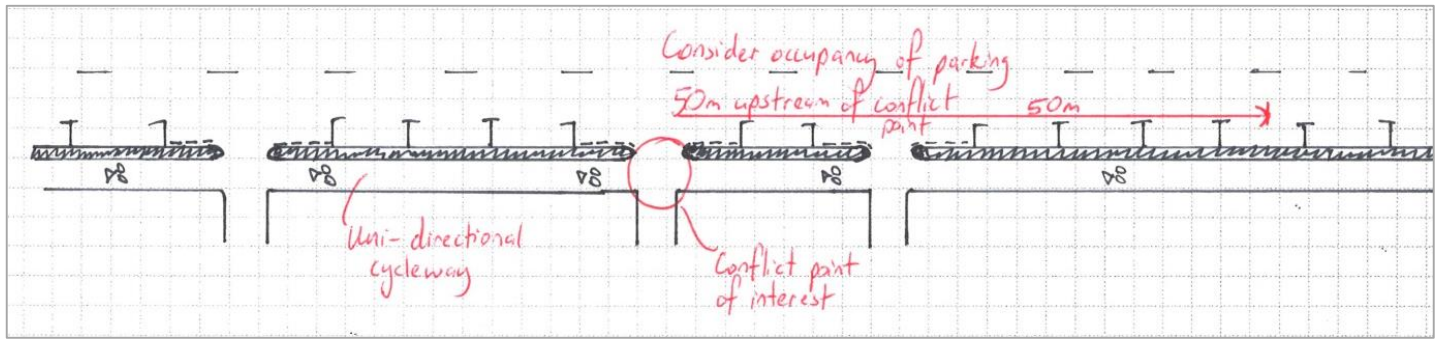 Consider occupancy of parking
50m upstream of conflict
point
50m
Uni-directional
cycleway
Conflict point
of interest